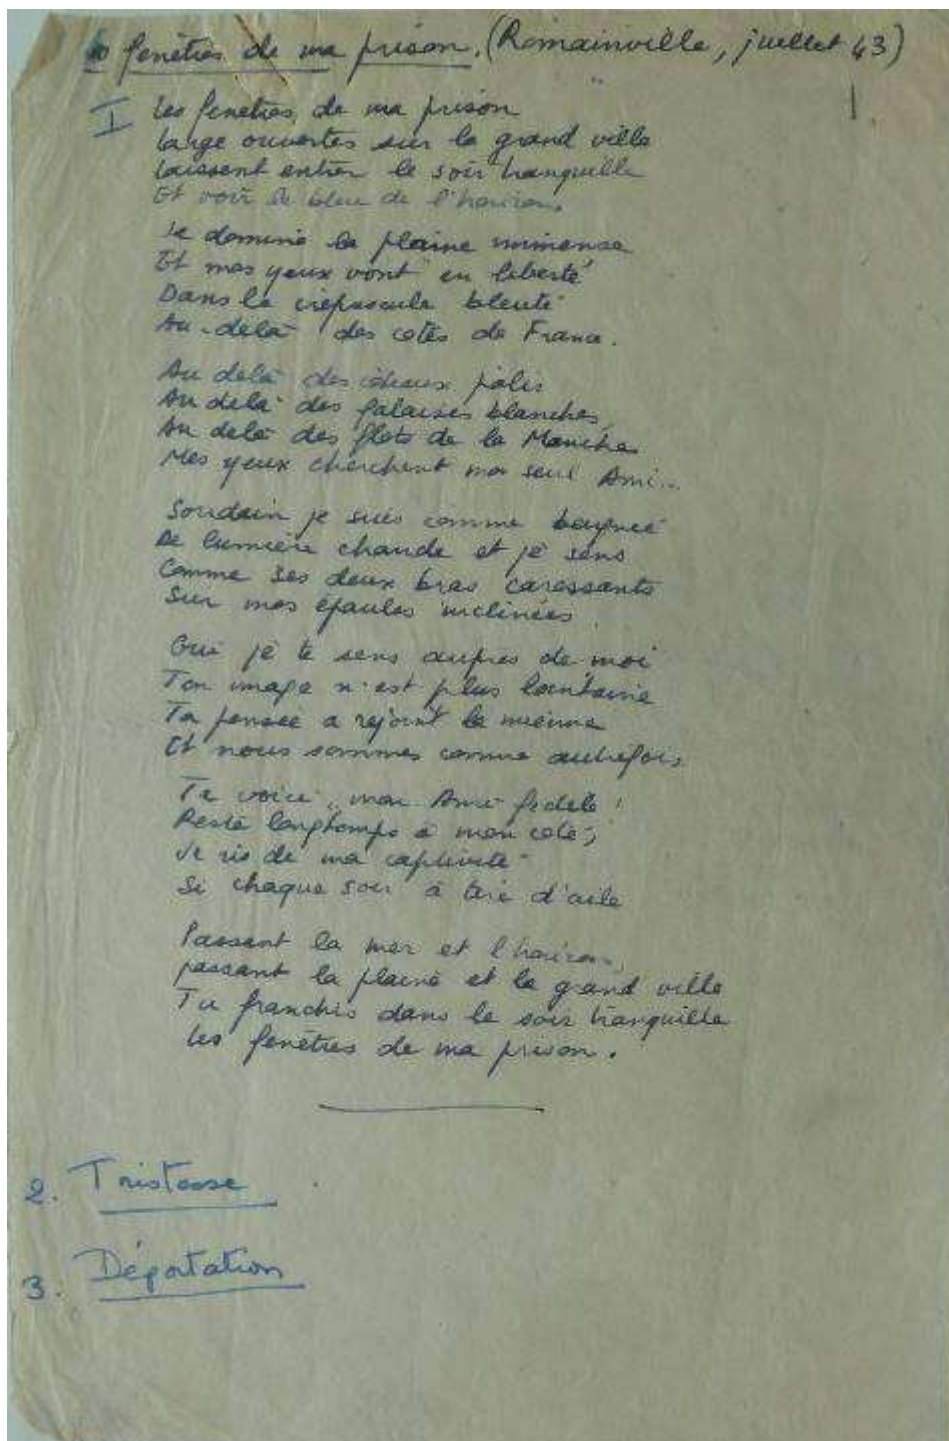 Les fenêtres de ma prison. (Romainville, juillet 43)
I Les fenêtres de ma prison
Large ouvertes sur la grand ville
Laissent entrer le soir tranquille
Et voir le bleu de l'horizon.
Je domine la plaine immense
Et mes yeux vont en liberté
Dans le crépuscule bleuté
Au-delà des côtes de France.
Au delà des côteaux jolis
Au delà des falaises blanches,
Au delà des flots de la Manche
Mes yeux cherchent mon seul Ami...
Soudain je suis comme baignée
De lumière chaude et je sens
Comme ses deux bras caressants
Sur mes épaules inclinées.
Oui je te sens auprès de moi
Ton image n'est plus lointaine
Ta pensée a rejoint la mienne
Et nous sommes comme autrefois.
Te voici, mon Ami fidèle !
Reste longtemps à mon côté,
Je ris de ma captivité
Si chaque soir à tire d'aile
Passant la mer et l'horizon,
passant la plaine et la grand ville
Tu franchis dans le soir tranquille
Les fenêtres de ma prison.
2. Tristesse
3. Déportation